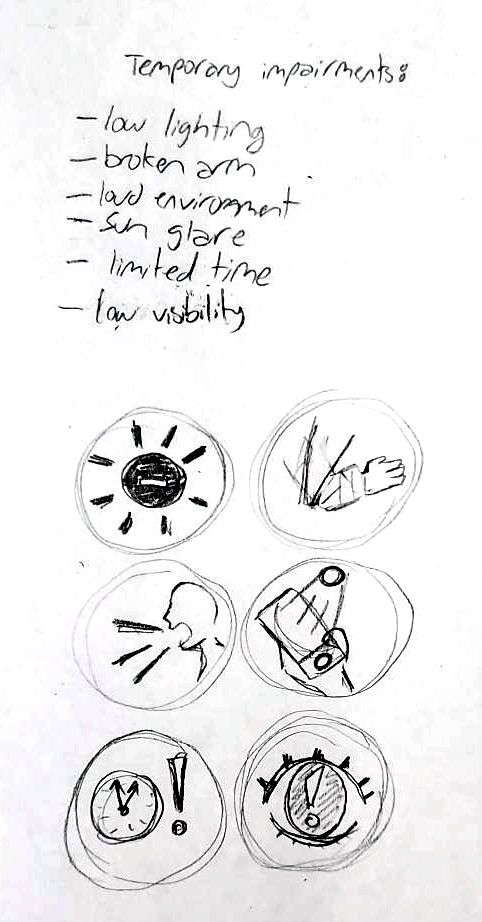 Temporary impairments:
- low lighting
- broken arm
- loud environment
- sun glare
- limited time
- low visibility